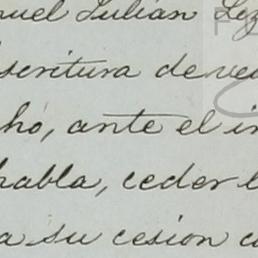 nuel Julián Liz
scritura de ve
ho, ante el in
habla, ceder l
a su cesion co